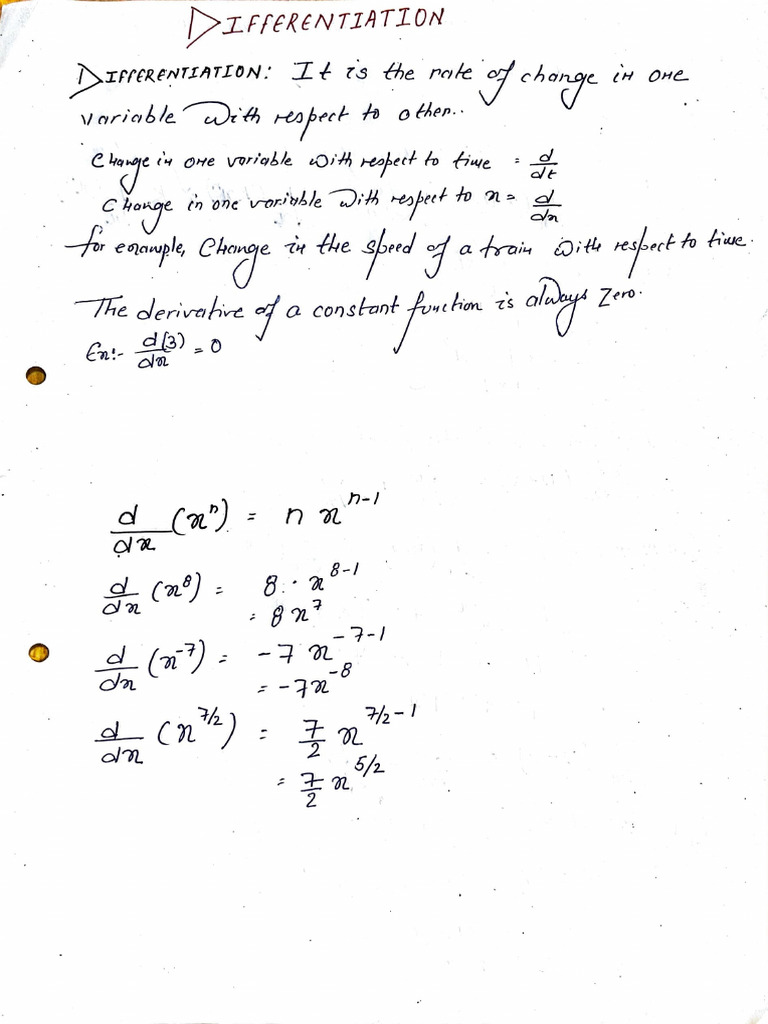 DIFFERENTIATION
DIFFERENTIATION: It is the rate of change in one
variable with respect to other..
Change in one variable with respect to time = d/dt
Change in one variable with respect to x = d/dx
for example, Change in the speed of a train with respect to time.
The derivative of a constant function is always Zero.
Ex:- d(3)/dx = 0
d/dx (xⁿ) = n xⁿ⁻¹
d/dx (x⁸) = 8 · x⁸⁻¹
= 8x⁷
d/dx (x⁻⁷) = -7 x⁻⁷⁻¹
= -7x⁻⁸
d/dx (x^7/2) = 7/2 x^7/2-1
= 7/2 x^5/2